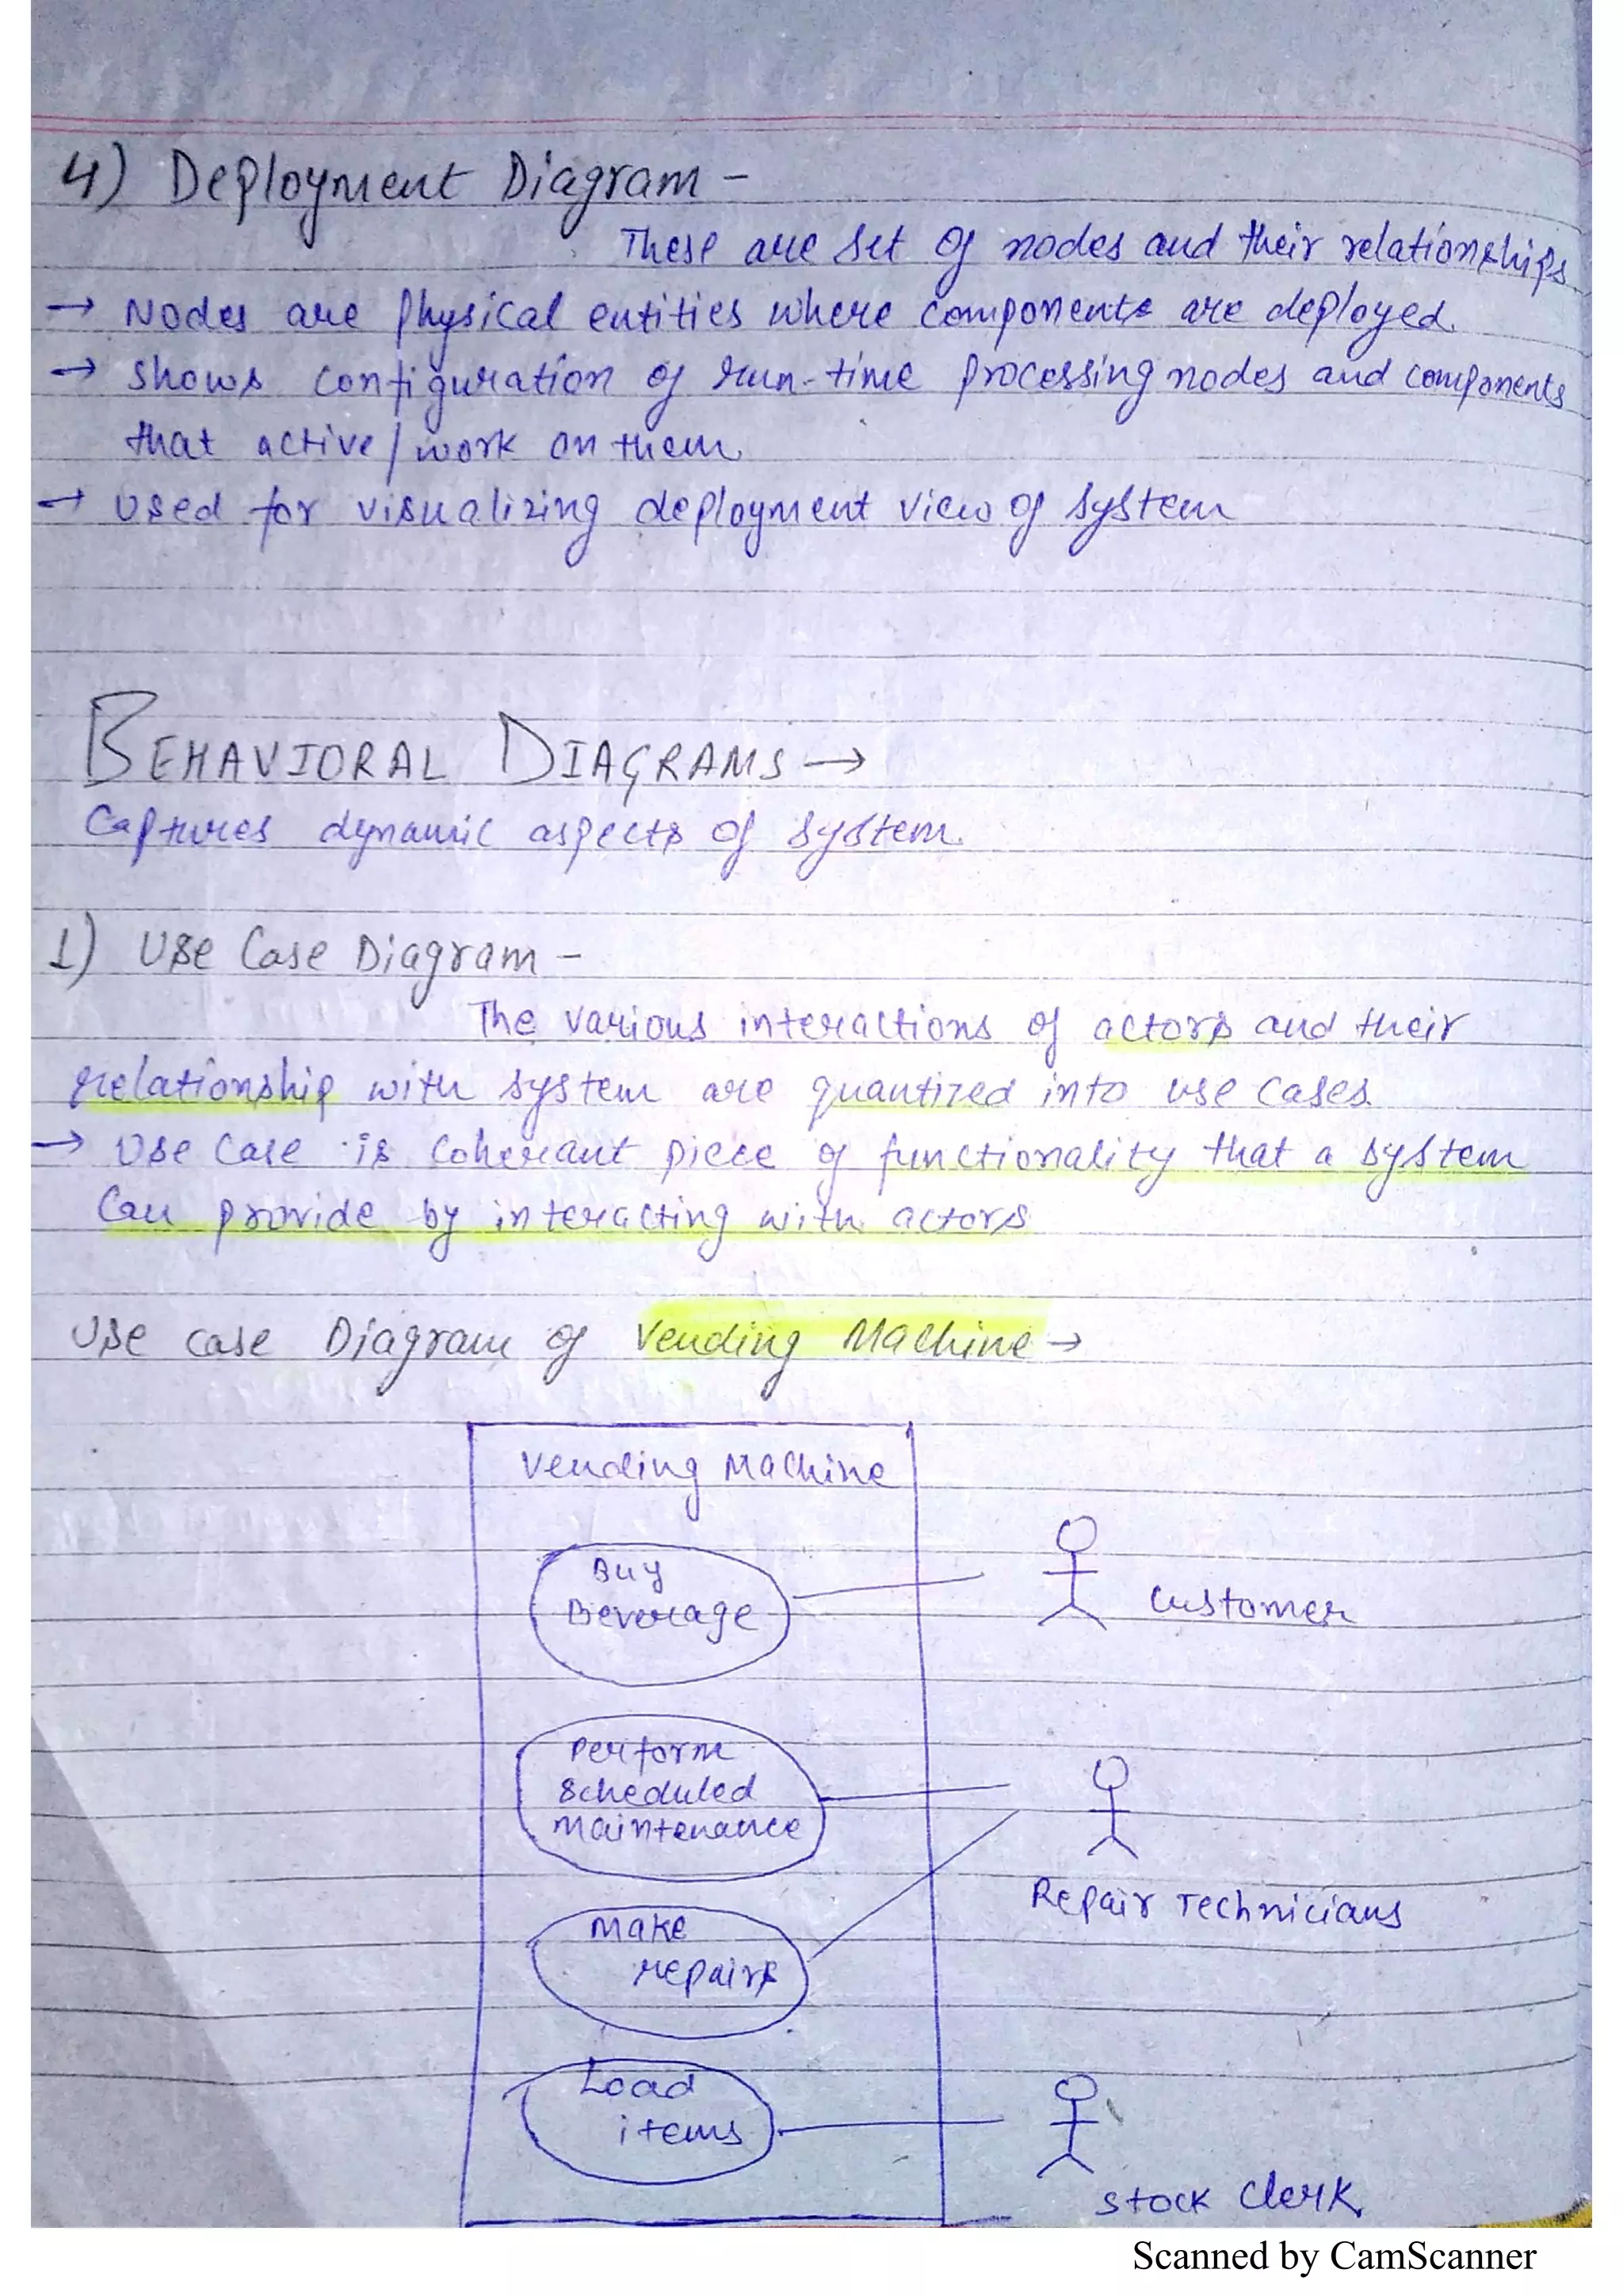 4) Deployment Diagram -
These are set of nodes and their relationships
→ Nodes are physical entities where components are deployed.
→ shows configuration of run-time processing nodes and components
that active/work on them
→ used for visualizing deployment view of system
BEHAVIORAL DIAGRAMS →
Captures dynamic aspects of system.
1) Use Case Diagram -
The various interactions of actors and their
relationship with system are quantized into use cases.
→ Use Case is coherant piece of functionality that a system
Can provide by interacting with actors
Use case Diagram of Vending Machine →
Vending Machine
Buy
Beverage
Customer
Perform
Scheduled
Maintenance
Repair Technicians
Make
repairs
Load
items
Stock Clerk
Scanned by CamScanner